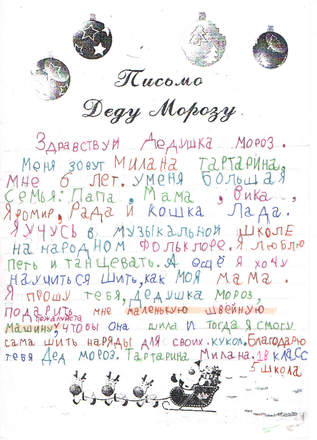 Письмо
Деду Морозу
Здравствуй Дедушка мороз.
Меня зовут Милана Тартарина,
мне 6 лет. уменя большая
семья: Папа, Мама, Вика,
Яромир, Рада и кошка Лада.
Я учусь в музыкальной школе
на народном фольклоре. Я люблю
петь и танцевать. А ещё я хочу
научиться шить, как моя мама.
Я прошу тебя, дедушка мороз,
подарить мне маленькую швейную
пожалуйста
машину чтобы она шила и тогда я смогу
сама шить наряды для своих кукол. Благодарю
тебя Дед мороз. Тартарина Милана. 1в класс
5 школа